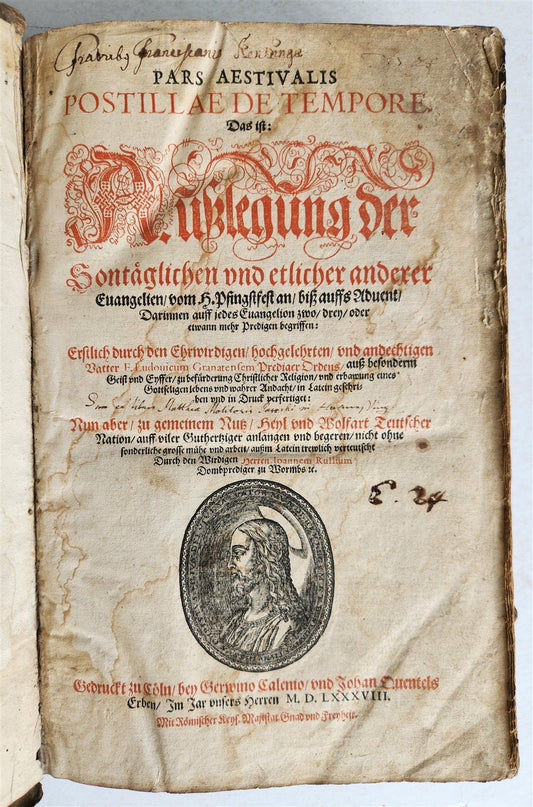 Fratribus Franciscanis
PARS AESTIVALIS
POSTILLAE DE TEMPORE.
Das ist:
Außlegung der
Sontäglichen vnd etlicher anderer
Euangelien/ vom H. Pfingstfest an/ biß auffs Aduent/
Darinnen auff jedes Euangelion zwo/ drey/ oder
etwann mehr Predigen begriffen:
Erstlich durch den Ehrwirdigen/ hochgelehrten/ vnd andechtigen
Vatter F. Ludouicum Granatensem Prediger Ordens/ auß besonderm
Geist vnd Eyffer/ zu befürderung Christlicher Religion/ vnd erbawung eines
Gottseligen lebens vnd wahrer Andacht/ in Latein geschri-
ben vnd in Druck verfertiget:
Nun aber/ zu gemeinem Nutz/ Heyl vnd Wolfart Teutscher
Nation/ auff viler Guthertziger anlangen vnd begeren/ nicht ohne
sonderliche grosse mühe vnd arbeit/ außm Latein trewlich verteutscht
Durch den Wirdigen Herren Ioannem Russium
Dombprediger zu Wormbs ꝛc.
E. 24
Gedruckt zu Cöln/ bey Gerwino Calenio/ vnd Johan Quentels
Erben/ Im Jar vnsers Herren M. D. LXXXVIII.
Mit Römischer Keys. Maiestat Gnad vnd Freyheit.